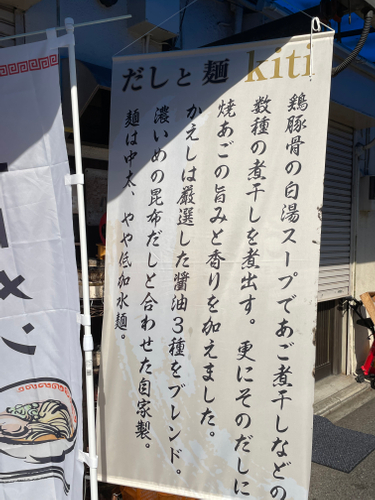 だしと麺 kiti
鶏豚骨の白湯スープであご煮干しなどの
数種の煮干しを煮出す。更にそのだしに
焼あごの旨みと香りを加えました。
かえしは厳選した醤油3種をブレンド。
濃いめの昆布だしと合わせた自家製。
麺は中太、やや低加水麺。
メン